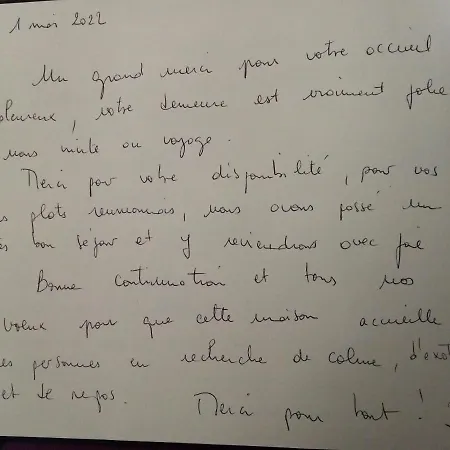 1 mai 2022
Un grand merci pour votre accueil
haleureux, votre demeure est vraiment jolie
nous invite au voyage.
Merci pour votre disponibilité, pour vos
s plats réunionnais, nous avons passé un
ès bon séjour et y reviendrons avec joie
Bonne continuation et tous nos
voeux pour que cette maison accueille
es personnes en recherche de calme, d'exot
et de repos. Merci pour tout !